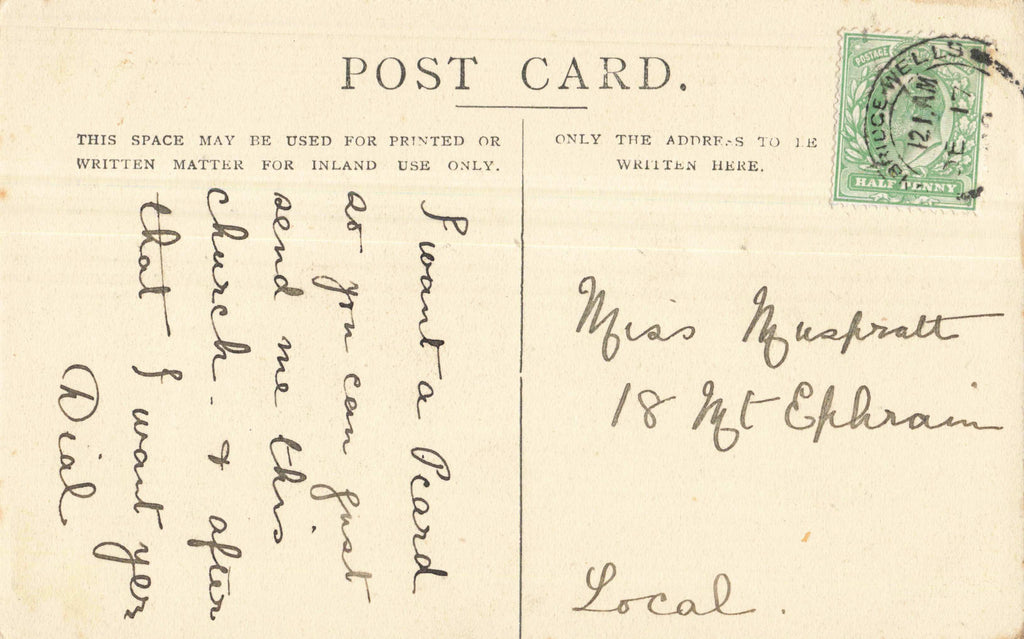 POST CARD.
THIS SPACE MAY BE USED FOR PRINTED OR
WRITTEN MATTER FOR INLAND USE ONLY.
ONLY THE ADDRESS TO BE
WRITTEN HERE.
POSTAGE
HALF PENNY
BRIDGE WELLS
12.1 AM
SE 17
I want a Pcard
so you can just
send me this
church. & after
that I want yer
Dial
Miss Muspratt
18 Mt Ephraim
Local.